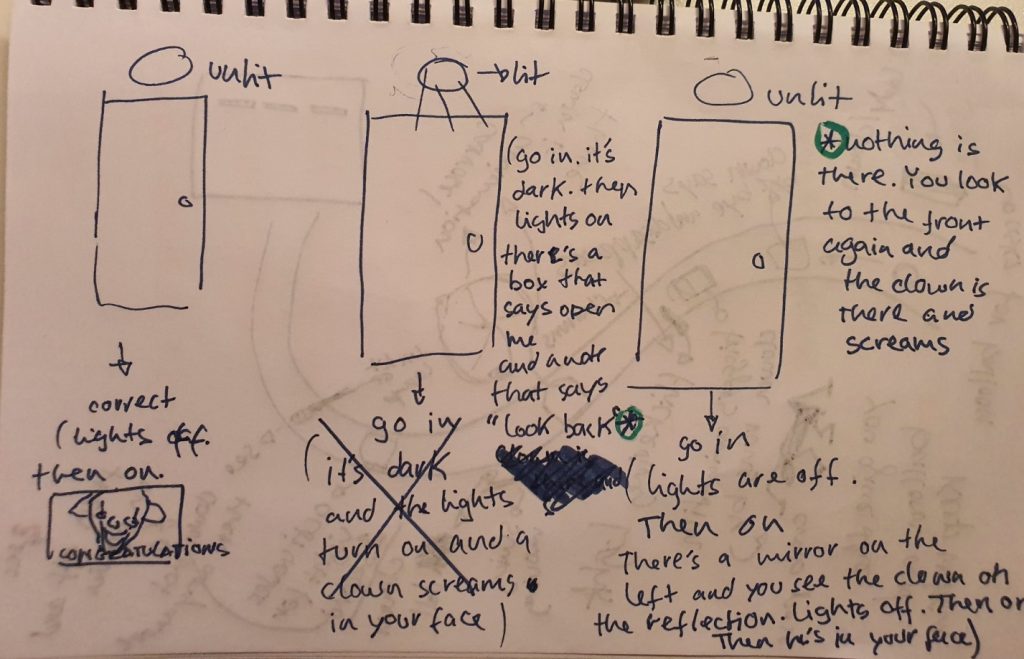 unlit
correct
(lights off.
then on.
CONGRATULATIONS
lit
(go in. it's
dark. then
lights on
there's a
box that
says open
me
and
that says
"look back" *
go in
(it's dark
and the lights
turn on and a
clown screams
in your face)
unlit
*nothing is
there. You look
to the front
again and
the clown is
there and
screams
go in
(lights are off.
Then on
There's a mirror on the
left and you see the clown on
the reflection. Lights off. Then on
Then he's in your face)